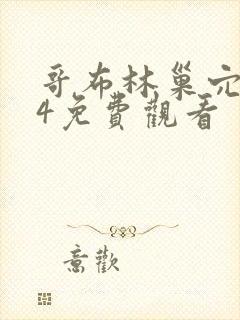 哥布林巢穴
4免費觀看
意歡